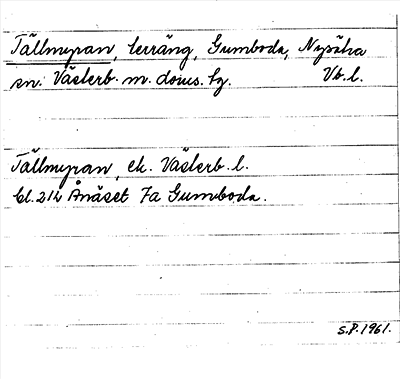 Tällmyran, terräng, Gumboda, Nysätra
sn. Västerb. m. doms. lg. Vb. l.
Tällmyran, ek. Västerb. l.
bl. 212 Ånäset 7a Gumboda.
S.P. 1961.